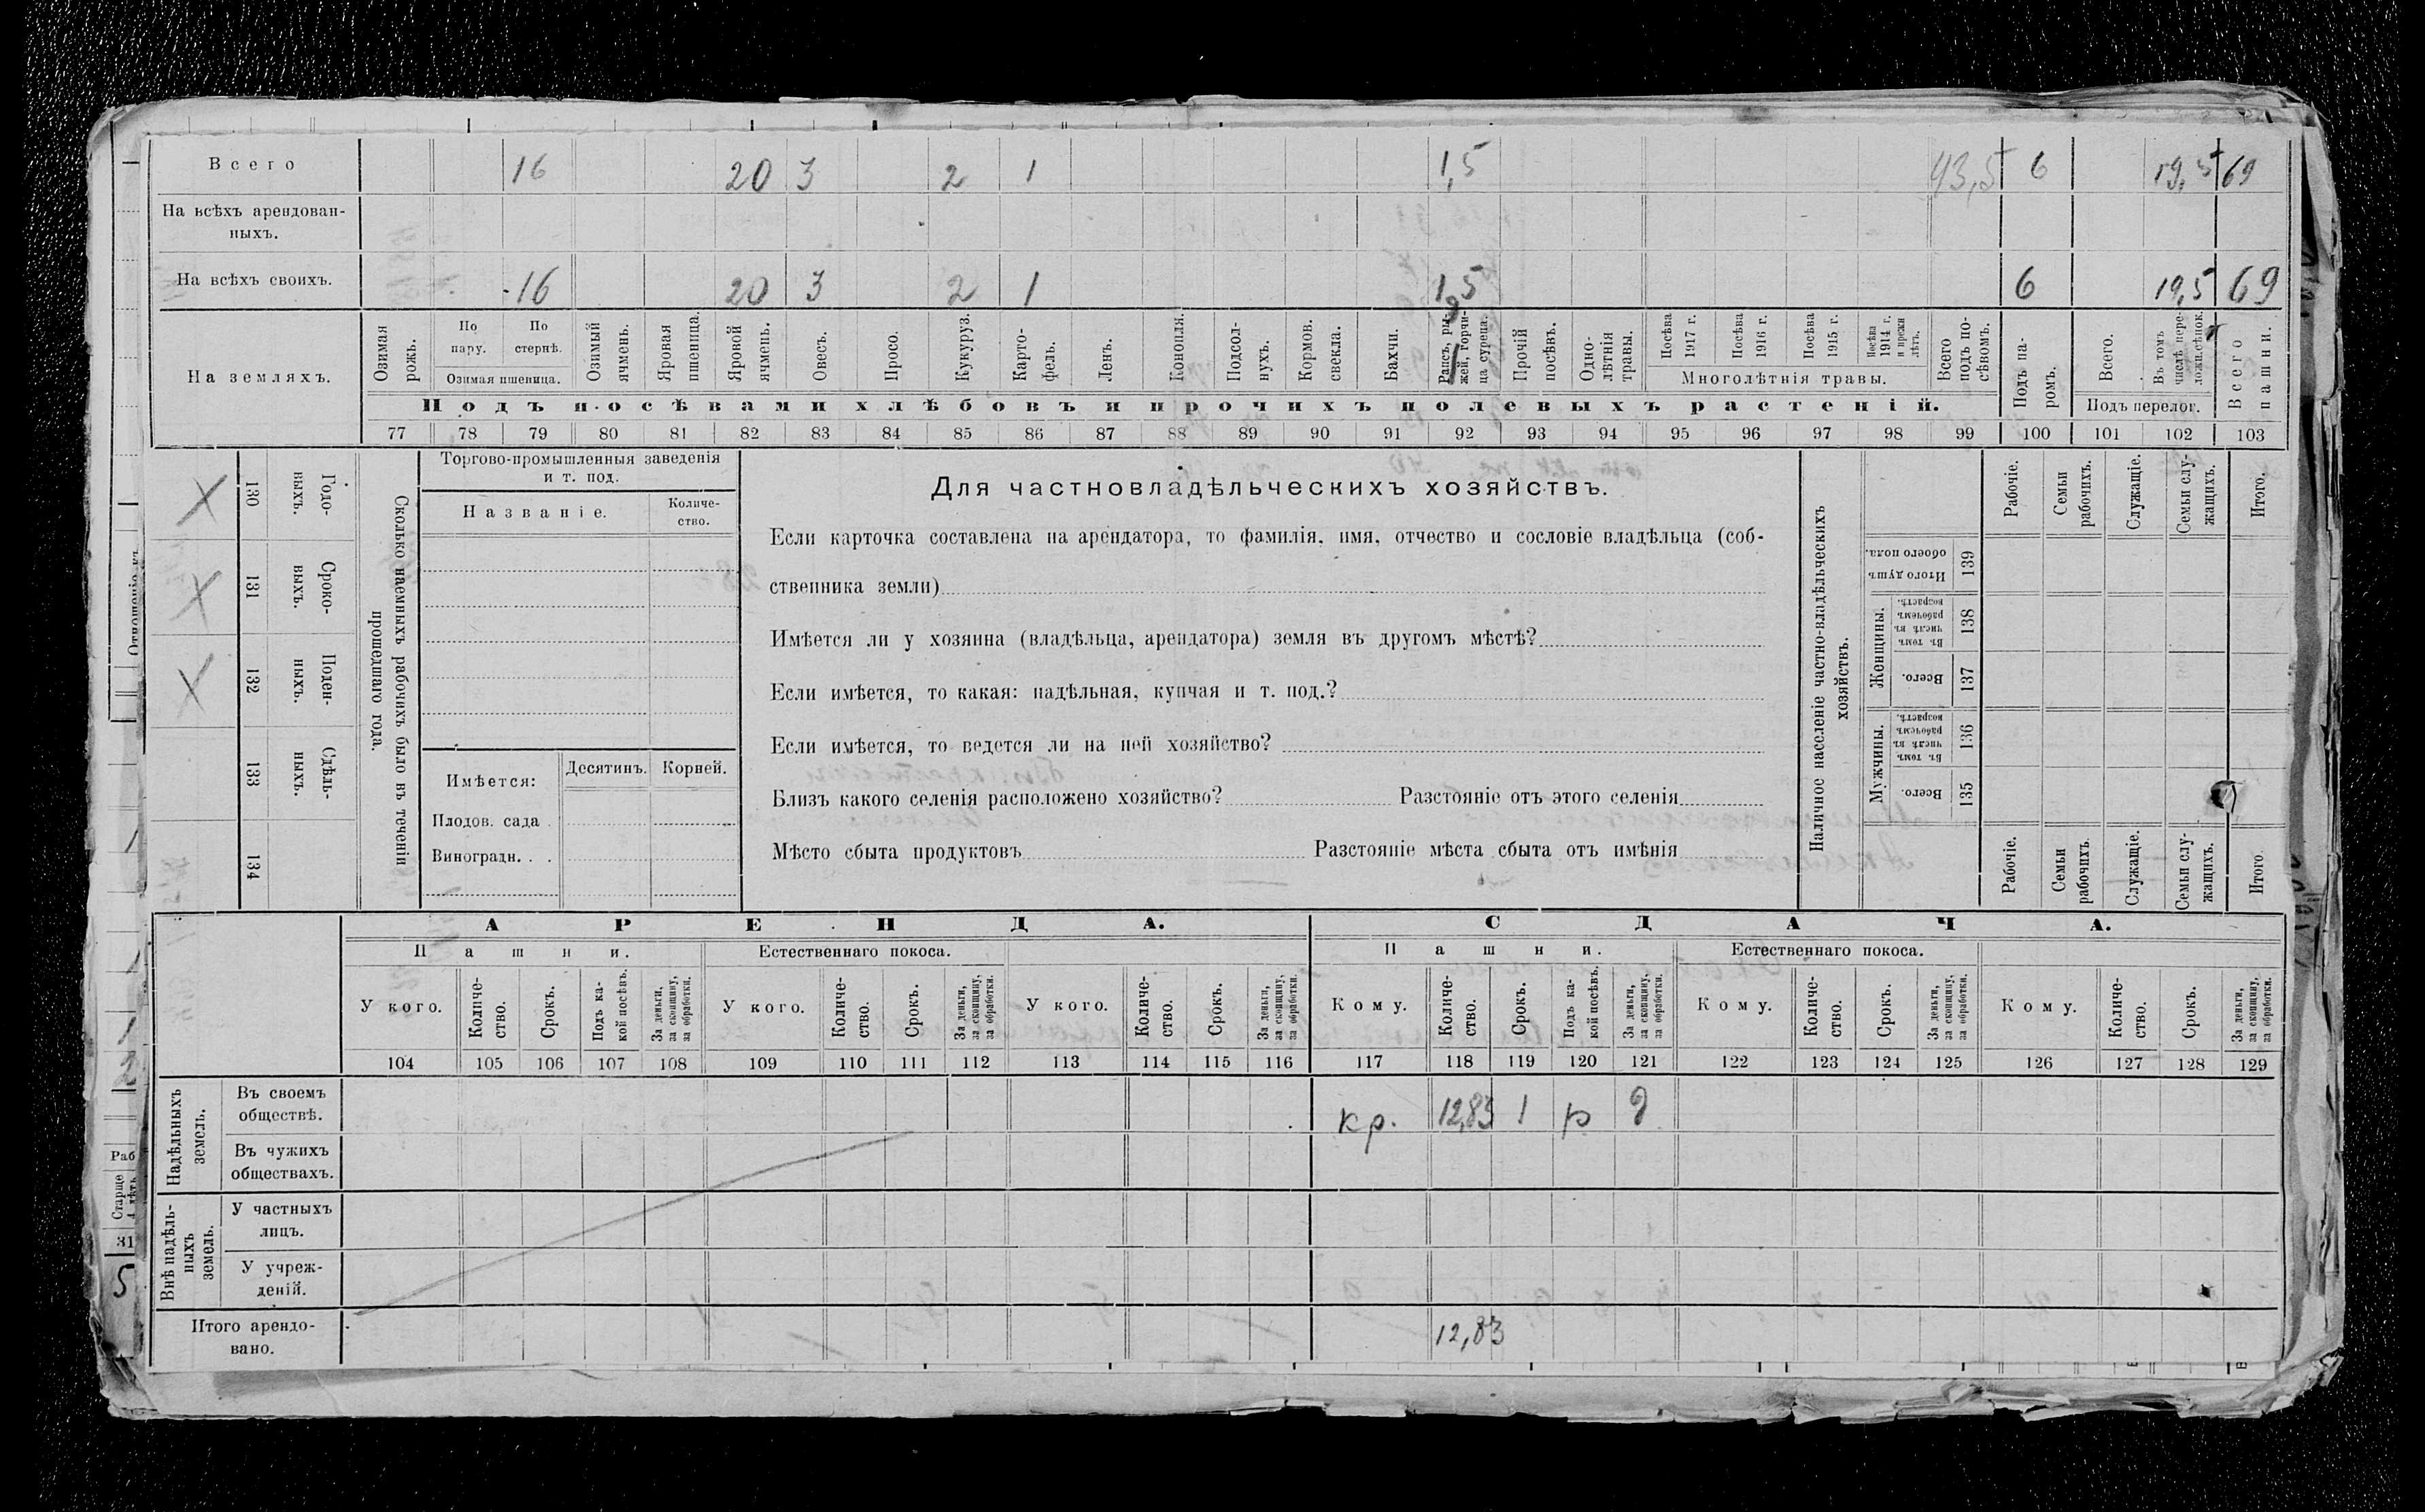 Всего 16 20 3 2 1 1,5 43,5 6 19,5 69
На всѣхъ арендован-
ныхъ.
На всѣхъ своихъ. 16 20 3 2 1 1,5 6 19,5 69
На земляхъ.
Озимая рожь.
По пару.
По стернѣ.
Озимая пшеница.
Озимый ячмень.
Яровая пшеница.
Яровой ячмень.
Овесъ.
Просо.
Кукуруз.
Карто-
фель.
Ленъ.
Конопля.
Подсол-
нухъ.
Кормов. свекла.
Бахчи.
Рапсъ, ры-
жей, горчи-
ца сурепа.
Прочій посѣвъ.
Одно-
лѣтнія травы.
Посѣва 1917 г.
Посѣва 1916 г.
Посѣва 1915 г.
Посѣва 1914 г. и прежн лѣтъ.
Многолѣтнія травы.
Всего подъ по-
сѣвомъ.
Подъ па-
ромъ.
Всего.
Въ томъ числѣ пере-
лож. сѣнок.
Подъ перелог.
Всего пашни.
Подъ посѣвами хлѣбовъ и прочихъ полевыхъ растеній.
77 78 79 80 81 82 83 84 85 86 87 88 89 90 91 92 93 94 95 96 97 98 99 100 101 102 103
Сколько наемныхъ рабочихъ было въ теченіи
прошедшаго года.
Годо-
выхъ. 130
Сроко-
выхъ. 131
Поден-
ныхъ. 132
Сдѣль-
ныхъ. 133
134
Торгово-промышленныя заведенія
и т. под.
Названіе. Количе-
ство.
Имѣется: Десятинъ. Корней.
Плодов. сада .
Виноградн. . .
Для частновладѣльческихъ хозяйствъ.
Если карточка составлена на арендатора, то фамилія, имя, отчество и сословіе владѣльца (соб-
ственника земли)
Имѣется ли у хозяина (владѣльца, арендатора) земля въ другомъ мѣстѣ?
Если имѣется, то какая: надѣльная, купчая и т. под.?
Если имѣется, то ведется ли на ней хозяйство?
Близъ какого селенія расположено хозяйство? Разстояніе отъ этого селенія
Мѣсто сбыта продуктовъ Разстояніе мѣста сбыта отъ имѣнія
Наличное населеніе частно-владѣльческихъ
хозяйствъ.
Рабочіе. Семьи рабочихъ. Служащіе. Семьи слу-
жащихъ. Итого.
Итого душъ обоего пола. 139
Женщины.
Въ томъ числѣ въ рабочемъ возрастѣ. 138
Всего. 137
Мужчины.
Въ томъ числѣ въ рабочемъ возрастѣ. 136
Всего. 135
Рабочіе. Семьи рабочихъ. Служащіе. Семьи слу-
жащихъ. Итого
АРЕНДА. СДАЧА.
Пашни. Естественнаго покоса. Пашни. Естественнаго покоса.
У кого. Количе-
ство. Срокъ. Подъ ка-
кой посѣвъ. За деньги, за скопщину, за обработки. У кого. Количе-
ство. Срокъ. За деньги, за скопщину, за обработки. У кого. Количе-
ство. Срокъ. За деньги, за скопщину, за обработки. Кому. Количе-
ство. Срокъ. Подъ ка-
кой посѣвъ. За деньги, за скопщину, за обработки. Кому. Количе-
ство. Срокъ. За деньги, за скопщину, за обработки. Кому. Количе-
ство. Срокъ. За деньги, за скопщину, за обработки.
104 105 106 107 108 109 110 111 112 113 114 115 116 117 118 119 120 121 122 123 124 125 126 127 128 129
Надѣльныхъ земель.
Въ своемъ
обществѣ. кр. 12,83 1 р д
Въ чужихъ
обществахъ.
Внѣ надѣль-
ныхъ земель.
У частныхъ
лицъ.
У учреж-
деній.
Итого арендо-
вано. 12,83
Раб
Старше
31
5